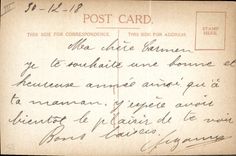 30-12-18
POST CARD.
THIS SIDE FOR CORRESPONDENCE. THIS SIDE FOR ADDRESS.
STAMP
HERE
Ma chère Carmen
je te souhaite une bonne et
heureuse année ainsi qu'à
ta maman. j'espère avoir
bientot le plaisir de te voir
Bons baisers
Suzanne